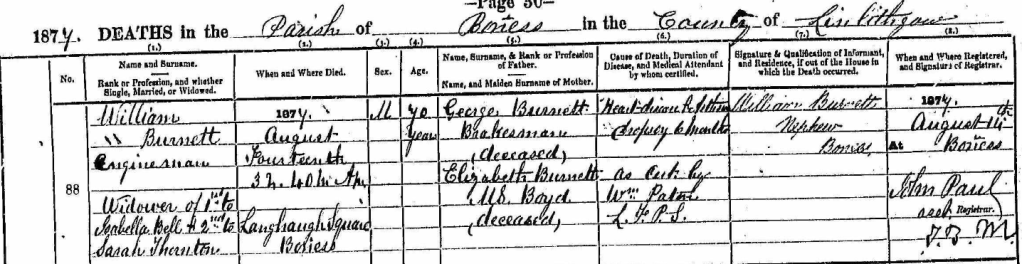 —Page 30—
1874. DEATHS in the Parish of Boness in the County of Linlithgow
(1.) (2.) (3.) (4.) (5.) (6.) (7.) (8.)
No.
Name and Surname.
Rank or Profession, and whether Single, Married, or Widowed.
When and Where Died.
Sex.
Age.
Name, Surname, & Rank or Profession of Father.
Name, and Maiden Surname of Mother.
Cause of Death, Duration of Disease, and Medical Attendant by whom certified.
Signature & Qualification of Informant, and Residence, if out of the House in which the Death occurred.
When and Where Registered, and Signature of Registrar.
88
William
" Burnett
Engineman
Widower of 1st to
Isabella Bell & 2nd to
Sarah Thornton
1874.
August
Fourteenth
3h. 40m A.M.
Boness
M
70
Years
George Burnett
Brakesman
(deceased)
Elizabeth Burnett
M.S. Boyd
(deceased)
Heart disease
dropsy 6 months
as cert. by
Wm Paton
L.F.P.S.
William Burnett
Nephew
Boness
1874.
August
At Boness
John Paul
asst. Registrar.